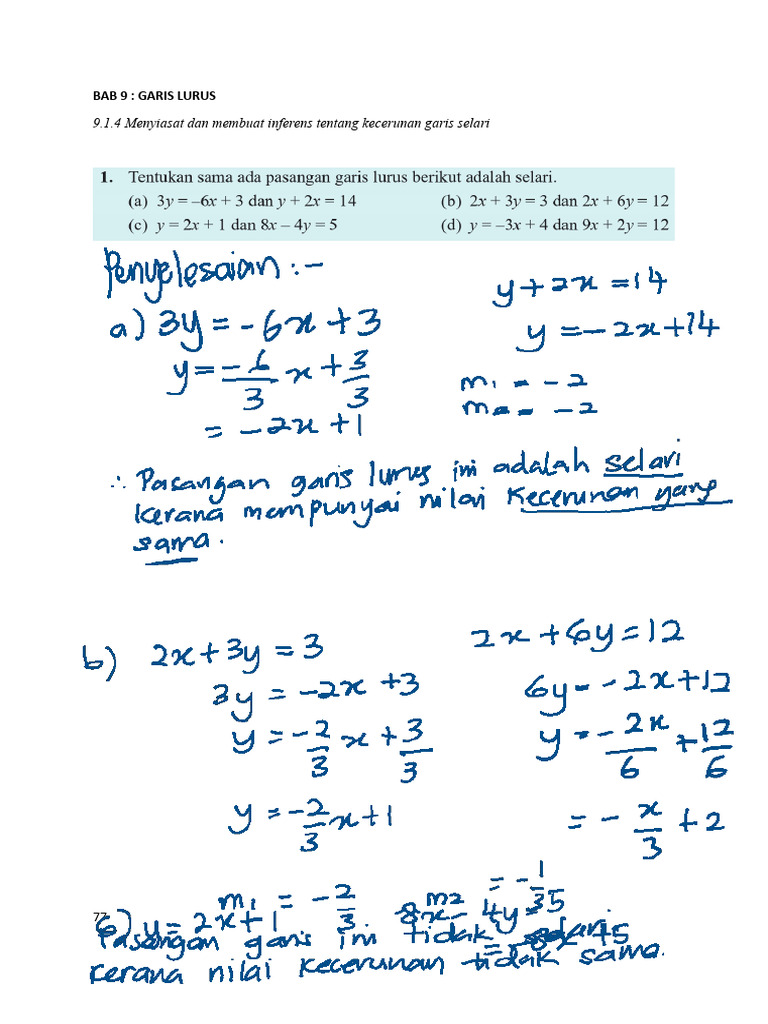 BAB 9 : GARIS LURUS
9.1.4 Menyiasat dan membuat inferens tentang kecerunan garis selari
1. Tentukan sama ada pasangan garis lurus berikut adalah selari.
(a) 3y = –6x + 3 dan y + 2x = 14 (b) 2x + 3y = 3 dan 2x + 6y = 12
(c) y = 2x + 1 dan 8x – 4y = 5 (d) y = –3x + 4 dan 9x + 2y = 12
Penyelesaian :-
a) 3y = -6x + 3
y = -6/3 x + 3/3
= -2x + 1
y + 2x = 14
y = -2x + 14
m1 = -2
m2 = -2
∴ Pasangan garis lurus ini adalah selari
kerana mempunyai nilai kecerunan yang
sama.
b) 2x + 3y = 3
3y = -2x + 3
y = -2/3 x + 3/3
y = -2/3 x + 1
2x + 6y = 12
6y = -2x + 12
y = -2x/6 + 12/6
= -x/3 + 2
m1 = -2/3 m2 = -1/3
77
y = 2x + 1 8x - 4y = 5
Pasangan garis ini tidak
kerana nilai kecerunan tidak sama.